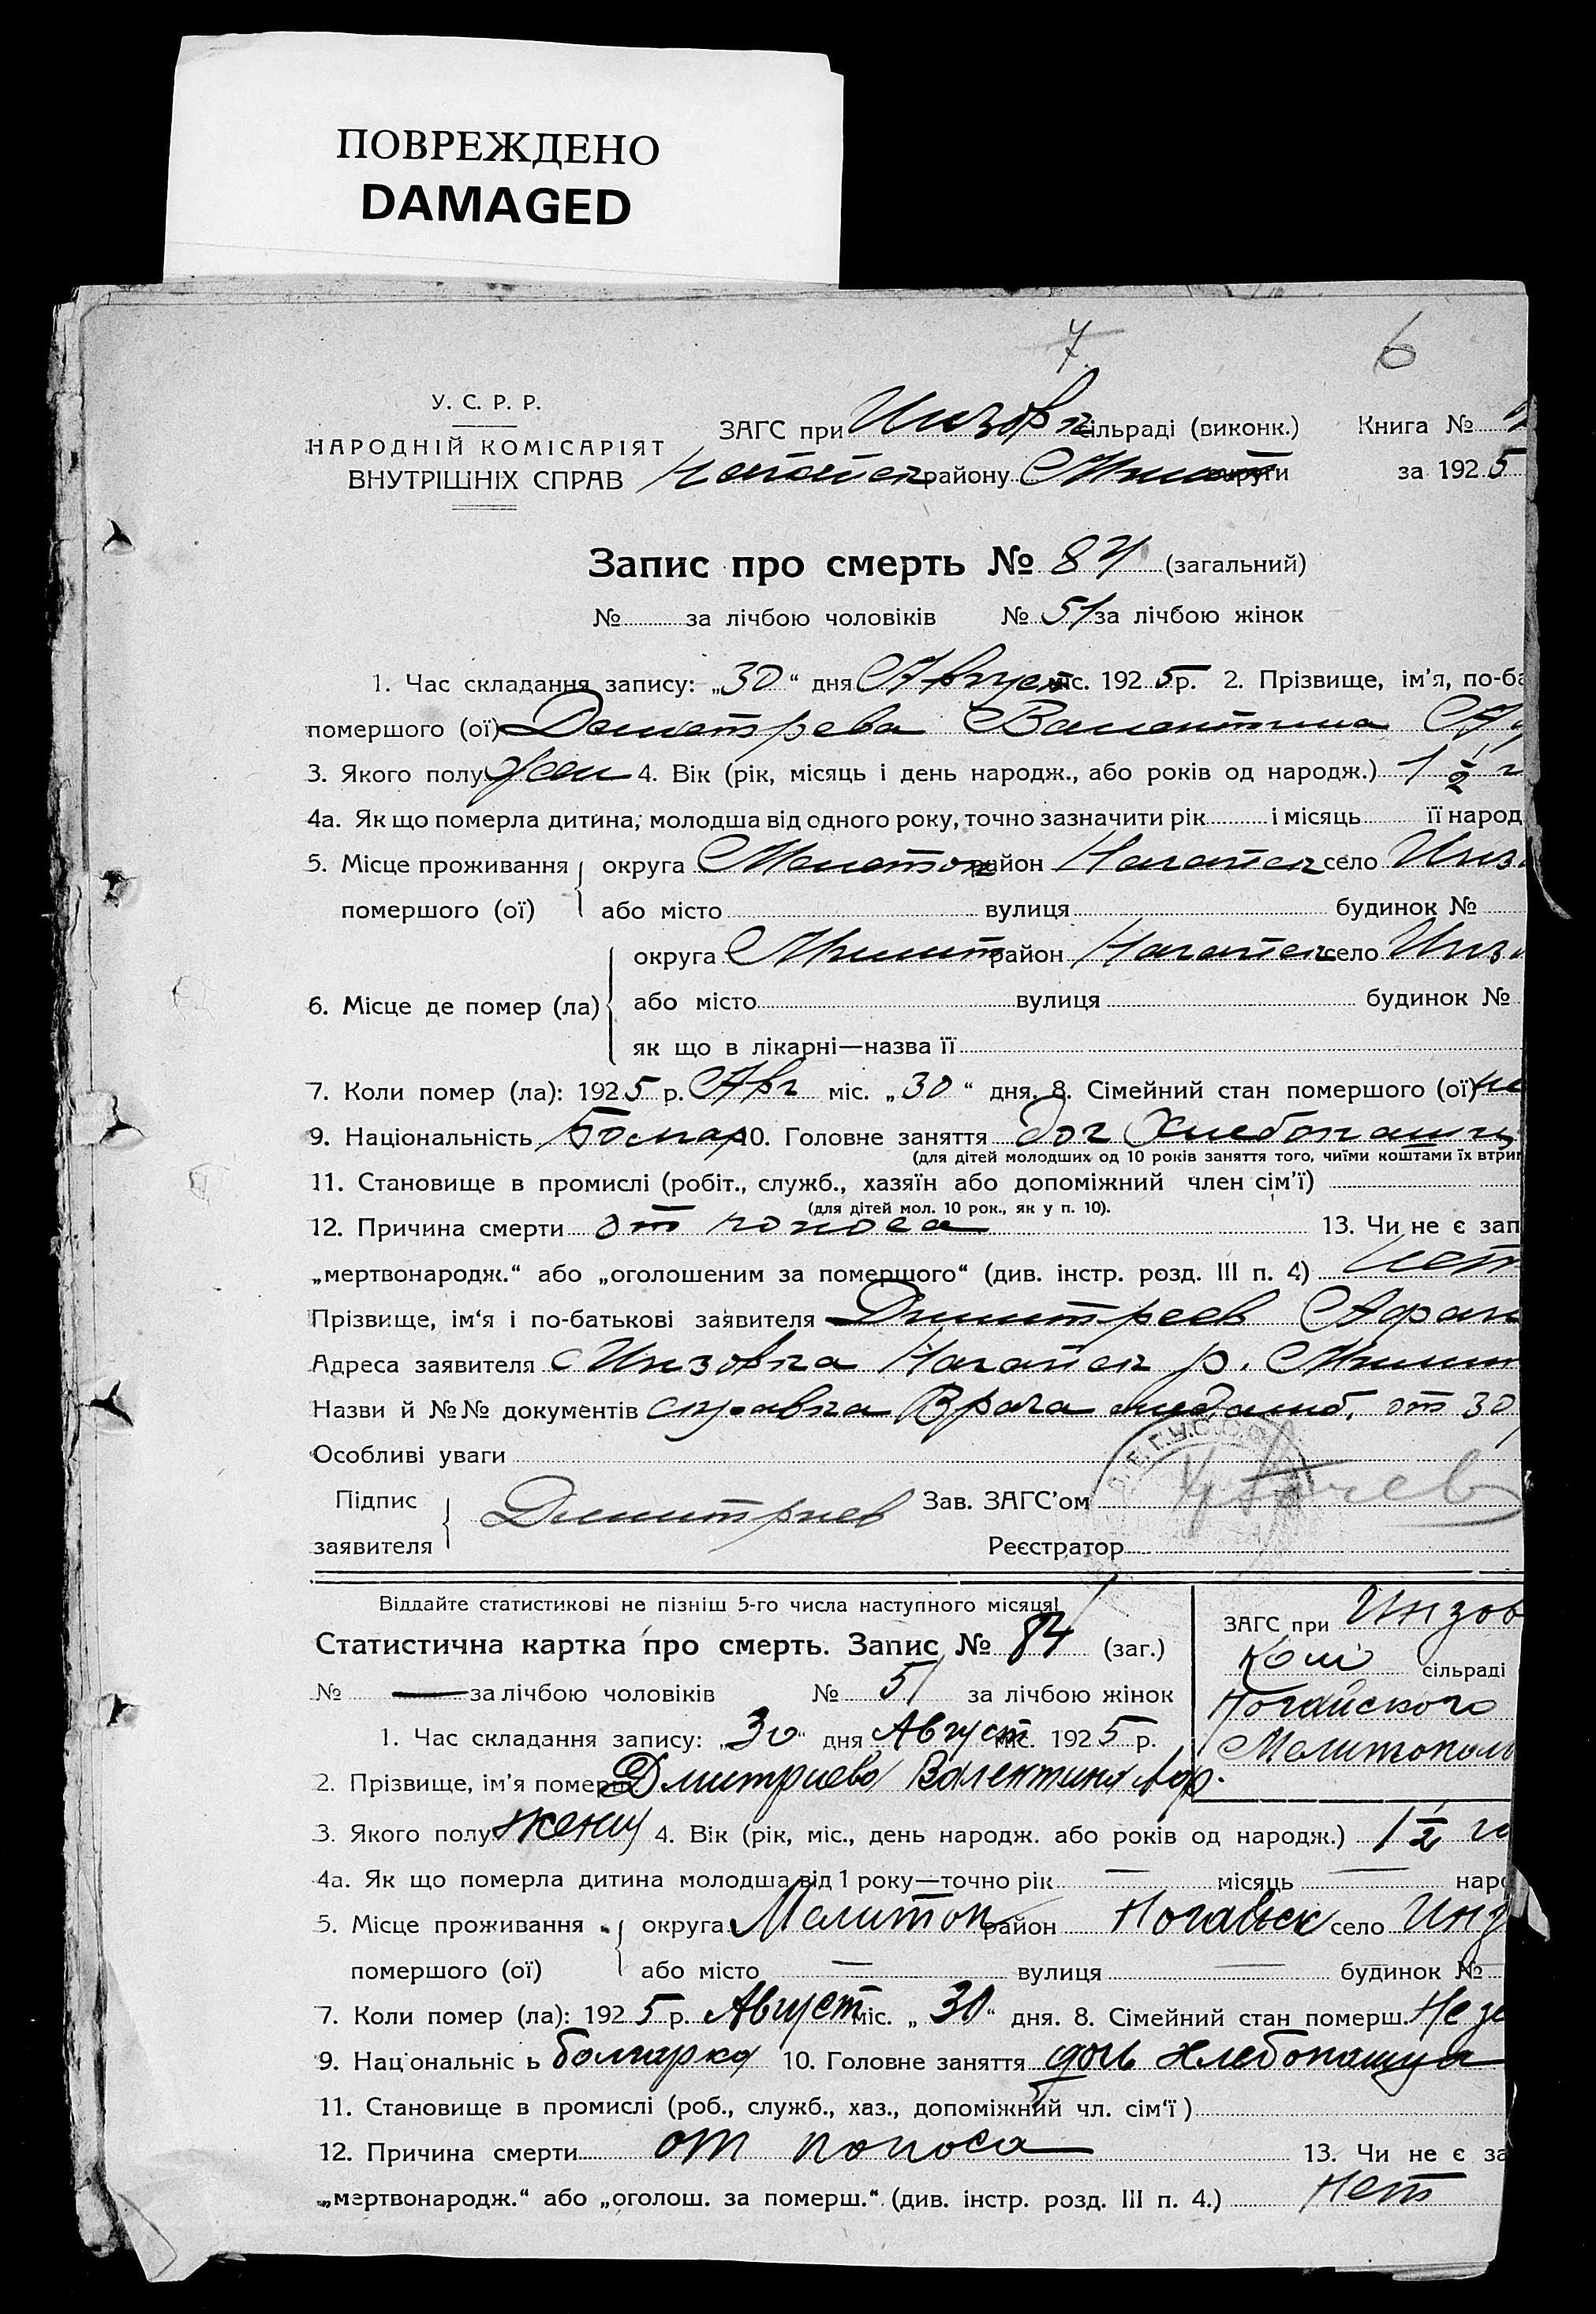 ПОВРЕЖДЕНО
DAMAGED
7
6
У. С. Р. Р.
НАРОДНІЙ КОМІСАРІЯТ
ВНУТРІШНІХ СПРАВ
ЗАГС при Инзовк сільраді (виконк.) Книга №
Ногайск району Мелит округи за 1925
Запис про смерть № 84 (загальний)
№ за лічбою чоловіків № 51 за лічбою жінок
1. Час складання запису: „30“ дня Август міс. 1925 р. 2. Прізвище, ім’я, по-ба
помершого (ої) Валентина
3. Якого полу жен 4. Вік (рік, місяць і день народж., або років од народж.) 1 1/2 г
4а. Як що померла дитина, молодша від одного року, точно зазначити рік і місяць її народ
5. Місце проживання округа Мелитоп район Ногайск село Инзо
помершого (ої) або місто вулиця будинок №
округа Мелит район Ногайск село Инзо
6. Місце де помер (ла) або місто вулиця будинок №
як що в лікарні—назва її
7. Коли помер (ла): 1925 р. Авг міс. „30“ дня. 8. Сімейний стан помершого (ої) не
9. Національність Болгар 10. Головне заняття доч Хлебопашц
(для дітей молодших од 10 років заняття того, чиїми коштами їх втрим
11. Становище в промислі (робіт., служб., хазяїн або допоміжний член сім’ї)
(для дітей мол. 10 рок., як у п. 10).
12. Причина смерти от поноса 13. Чи не є зап
„мертвонародж.“ або „оголошеним за помершого“ (див. інстр. розд. III п. 4) Нет
Прізвище, ім‘я і по-батькові заявителя Димитреев Афан
Адреса заявителя с Инзовка Ногайск р. Мелит
Назви й №№ документів справка Врача амб. от 30
Особливі уваги
Підпис Зав. ЗАГС’ом
заявителя Димитриев
Реєстратор
Віддайте статистикові не пізніш 5-го числа наступного місяця!
Статистична картка про смерть. Запис № 84 (заг.)
№ — за лічбою чоловіків № 51 за лічбою жінок
ЗАГС при Инзов
кой сільраді
Ногайского
Мелитополь
1. Час складання запису: „30“ дня Август міс. 1925 р.
2. Прізвище, ім’я померш. Дмитриева Валентина Аф.
3. Якого полу женщ 4. Вік (рік, міс., день народж. або років од народж.) 1 1/2 го
4а. Як що померла дитина молодша від 1 року—точно рік — місяць — наро
5. Місце проживання округа Мелитоп район Ногайск село Инз
помершого (ої) або місто — вулиця — будинок №
7. Коли помер (ла): 1925 р. Август міс. „30“ дня. 8. Сімейний стан померш. Не за
9. Нац ональніс ь болгарка 10. Головне заняття дочь хлебопашца
11. Становище в промислі (роб., служб., хаз., допоміжний чл. сім‘ї)
12. Причина смерти от поноса 13. Чи не є за
„мертвонародж.“ або „оголош. за померш.“ (див. інстр. розд. III п. 4.) Нет